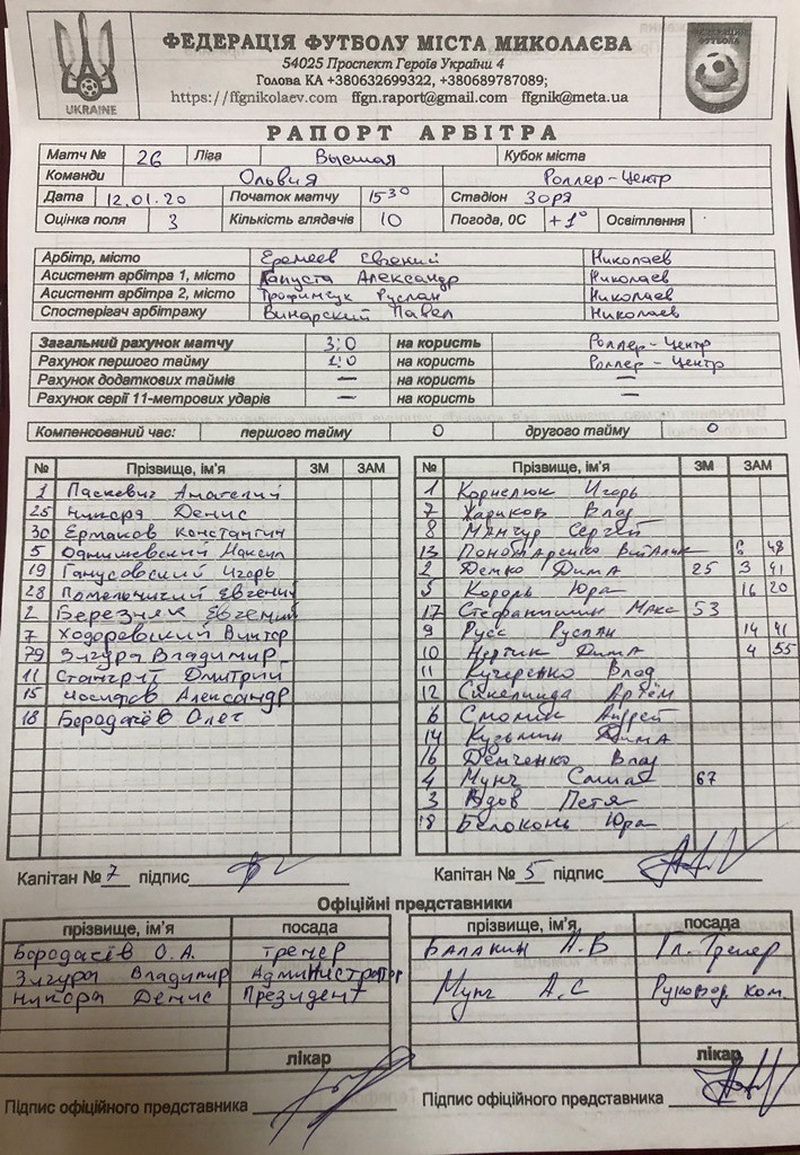 ФЕДЕРАЦІЯ ФУТБОЛУ МІСТА МИКОЛАЄВА
54025 Проспект Героїв України 4
Голова КА +380632699322, +380689787089;
https://ffgnikolaev.com ffgn.raport@gmail.com ffgnik@meta.ua
UKRAINE
РАПОРТ АРБІТРА
Матч № 26 Ліга Высшая Кубок міста
Команди Ольвия Роллер-Центр
Дата 12.01.20 Початок матчу 15-30 Стадіон Зоря
Оцінка поля 3 Кількість глядачів 10 Погода, 0С +1° Освітлення
Арбітр, місто Еремеев Евгений Николаев
Асистент арбітра 1, місто Капуста Александр Николаев
Асистент арбітра 2, місто Трофимчук Руслан Николаев
Спостерігач арбітражу Винарский Павел Николаев
Загальний рахунок матчу 3:0 на користь Роллер-Центр
Рахунок першого тайму 1:0 на користь Роллер-Центр
Рахунок додаткових таймів — на користь —
Рахунок серії 11-метрових ударів — на користь —
Компенсований час: першого тайму 0 другого тайму 0
№ Прізвище, ім'я ЗМ ЗАМ
1 Паскевич Анатолий
25 Никора Денис
30 Ермаков Константин
5 Максим
19 Ганусовский Игорь
28 Помельничий Евгений
2 Березняк Евгений
7 Ходоровский Виктор
79 Зигура Владимир
11 Дмитрий
15 Иосифов Александр
18 Бородаёв Олег
№ Прізвище, ім'я ЗМ ЗАМ
1 Корнелюк Игорь
7 Жариков Влад
8 Манчур Сергей
13 Пономаренко Виталик 48
2 Демко Дима 25 3 41
5 Король Юра 16 20
17 Стефанишин Макс 53
9 Русс Руслан 14 41
10 Дима 4 55
11 Кучеренко Влад
12 Артём
6 Андрей
14 Кузьмин Дима
16 Демченко Влад
4 Мунч Саша 67
3 Вдов Петя
18 Белоконь Юра
Капітан № 7 підпис
Капітан № 5 підпис
Офіційні представники
прізвище, ім'я посада
Бородаєв О.А. тренер
Зигура Владимир Администратор
Никора Денис Президент
лікар
прізвище, ім'я посада
Балакин А.В Гл. Тренер
Мунч А.С Руковод. ком.
лікар
Підпис офіційного представника
Підпис офіційного представника